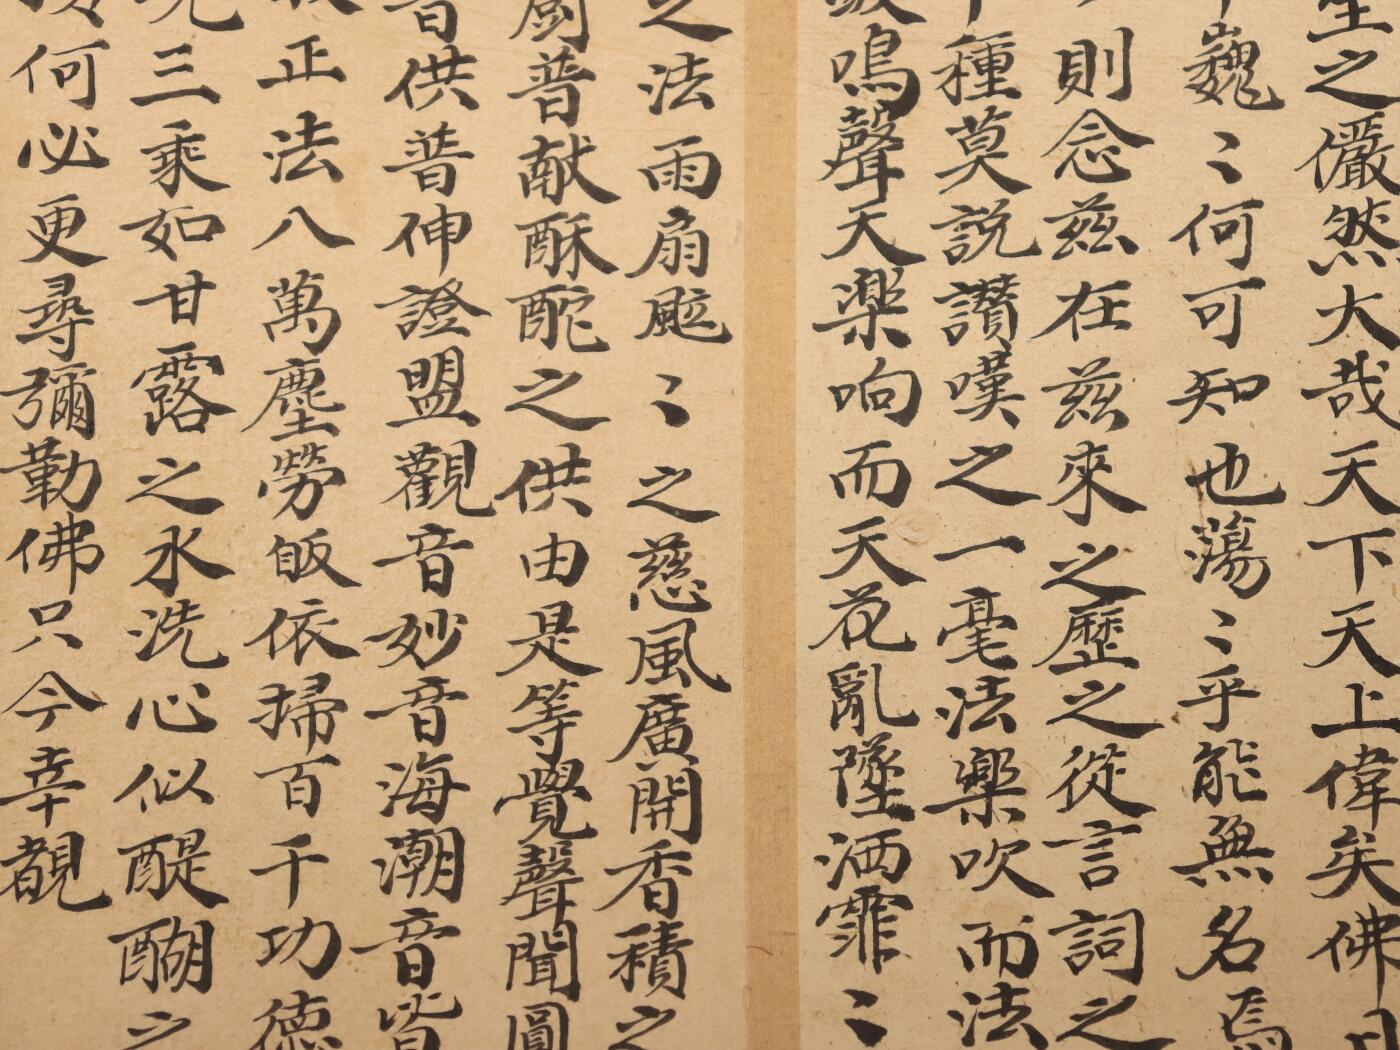 之儼然大哉天下天上偉矣佛
巍〻何可知也蕩〻乎能無名焉
則念兹在兹來之歷之從言詞之
種莫説讃嘆之一毫法樂吹而法
鳴聲天楽响而天花亂墜洒霏〻
之法雨扇颭〻之慈風廣開香積之
厨普献酥酡之供由是等覺聲聞圓
音供普伸證盟觀音妙音海潮音皆
正法八萬塵勞皈依掃百千功德
三乘如甘露之水洗心似醍醐之
何必更尋彌勒佛只今幸覩